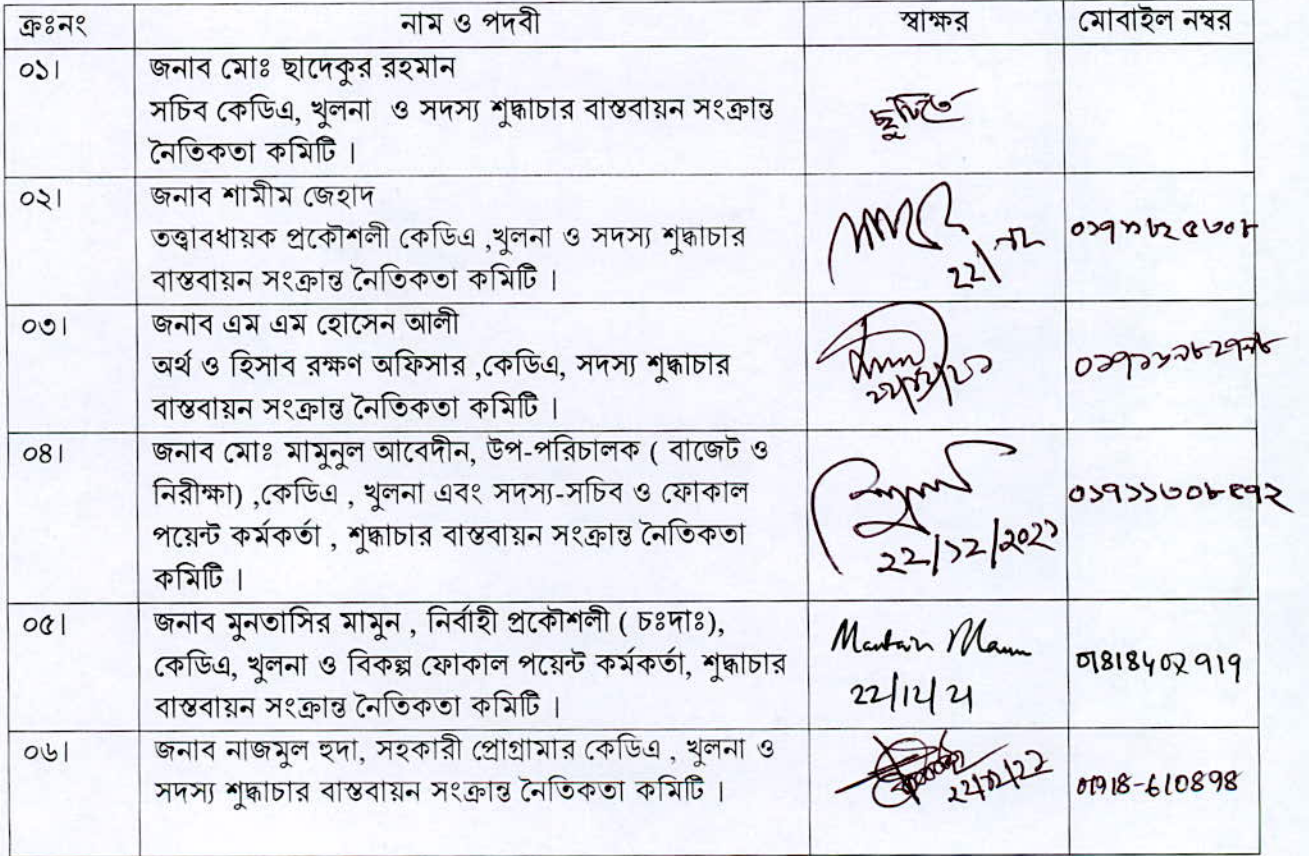 ক্রঃনং নাম ও পদবী স্বাক্ষর মোবাইল নম্বর
০১। জনাব মোঃ ছাদেকুর রহমান
সচিব কেডিএ, খুলনা ও সদস্য শুদ্ধাচার বাস্তবায়ন সংক্রান্ত
নৈতিকতা কমিটি ।
০২। জনাব শামীম জেহাদ
তত্ত্বাবধায়ক প্রকৌশলী কেডিএ ,খুলনা ও সদস্য শুদ্ধাচার
বাস্তবায়ন সংক্রান্ত নৈতিকতা কমিটি ।
০৩। জনাব এম এম হোসেন আলী
অর্থ ও হিসাব রক্ষণ অফিসার ,কেডিএ, সদস্য শুদ্ধাচার
বাস্তবায়ন সংক্রান্ত নৈতিকতা কমিটি ।
০৪। জনাব মোঃ মামুনুল আবেদীন, উপ-পরিচালক ( বাজেট ও
নিরীক্ষা) ,কেডিএ , খুলনা এবং সদস্য-সচিব ও ফোকাল
পয়েন্ট কর্মকর্তা , শুদ্ধাচার বাস্তবায়ন সংক্রান্ত নৈতিকতা ০১৭১১৩০৮৫৭২
কমিটি । 22/১2/২০2১
০৫। জনাব মুনতাসির মামুন , নির্বাহী প্রকৌশলী ( চঃদাঃ),
কেডিএ, খুলনা ও বিকল্প ফোকাল পয়েন্ট কর্মকর্তা, শুদ্ধাচার 01818402919
বাস্তবায়ন সংক্রান্ত নৈতিকতা কমিটি । 22/12/21
০৬। জনাব নাজমুল হুদা, সহকারী প্রোগ্রামার কেডিএ , খুলনা ও
সদস্য শুদ্ধাচার বাস্তবায়ন সংক্রান্ত নৈতিকতা কমিটি । 01918-610898